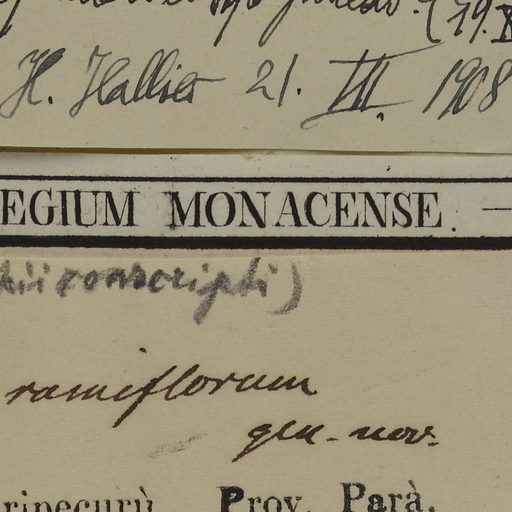 (19. X
H. Hallier 21. III. 1908
EGIUM MONACENSE. —
conscripti)
ramiflorum
gen. nov.
ripecurù Prov. Parà.